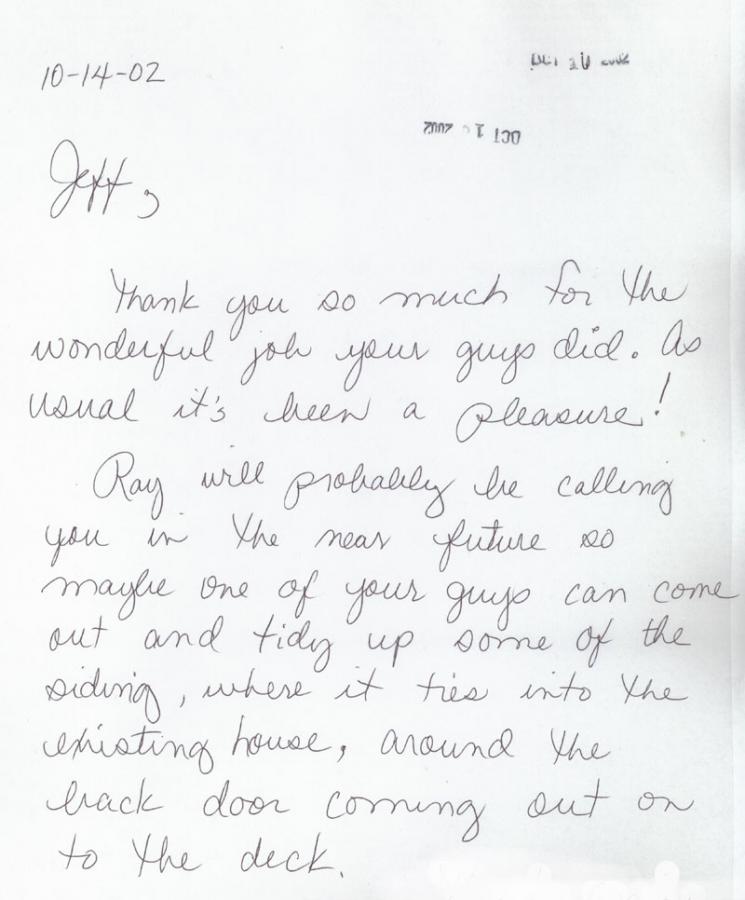 10-14-02
OCT 2002
OCT 1 2002
Jeff,
Thank you so much for the
wonderful job your guys did. As
usual it's been a pleasure!
Ray will probably be calling
you in the near future so
maybe one of your guys can come
out and tidy up some of the
siding, where it ties into the
existing house, around the
back door coming out on
to the deck.